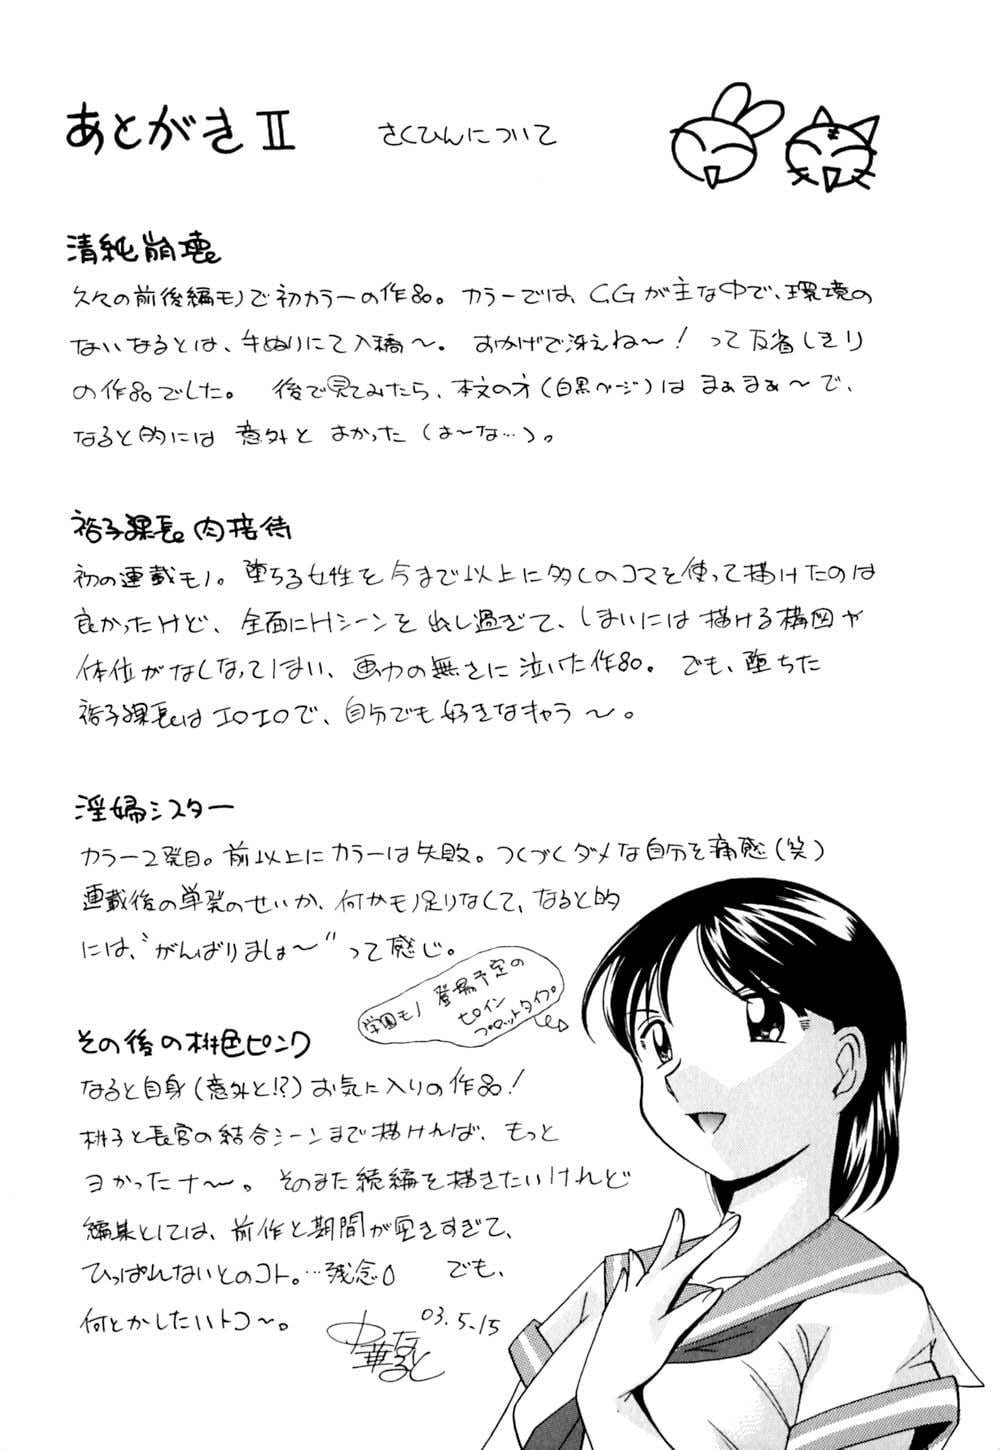 あとがきⅡ さくひんについて
清純崩壊。
久々の前後編モノで初カラーの作品。カラーでは、CGが主な中で、環境の
ないなるとは、手ぬりにて入稿～。おかげで冴えね～！って反省しきり
の作品でした。後で見てみたら、本文の方（白黒ページ）はまぁまぁ～で、
なると的には意外とよかった（は～な…）。
裕子課長。肉接待
初の連載モノ。堕ちる女性を今まで以上に多くのコマを使って描けたのは
良かったけど、全面にHシーンを出し過ぎて、しまいには描ける構図や
体位がなくなってしまい、画力の無さに泣いた作品。でも、堕ちた
裕子課長はエロエロで、自分でも好きなキャラ～。
淫婦シスター
カラー2発目。前以上にカラーは失敗。つくづくダメな自分を痛感（笑）
連載後の単発のせいか、何かモノ足りなくて、なると的
には、“がんばりましょ～”って感じ。
学園モノ登場予定の
ヒロイン
プロットタイプ。
その後の桃色ピンク
なると自身（意外と！？）お気に入りの作品！
桃子と長官の結合シーンまで描ければ、もっと
ヨかったナ～。そのまた続編を描きたいけれど
編集としては、前作と期間が空きすぎて、
ひっぱれないとのコト。…残念 でも、
何とかしたいトコ～。
03.5.15
中華なると